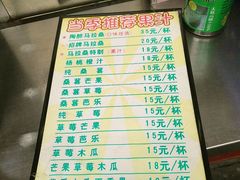 当季推荐果汁
陶醉马拉桑 35元/杯
招牌马拉桑 20元/杯
马拉桑特制 (果汁) 18元/杯
杨桃橙汁 18元/杯
纯桑葚 15元/杯
桑葚芒果 15元/杯
桑葚草莓 15元/杯
桑葚芭乐 15元/杯
纯草莓 15元/杯
草莓芒果 15元/杯
草莓芭乐 15元/杯
草莓木瓜 15元/杯
芒果草莓木瓜 18元/杯